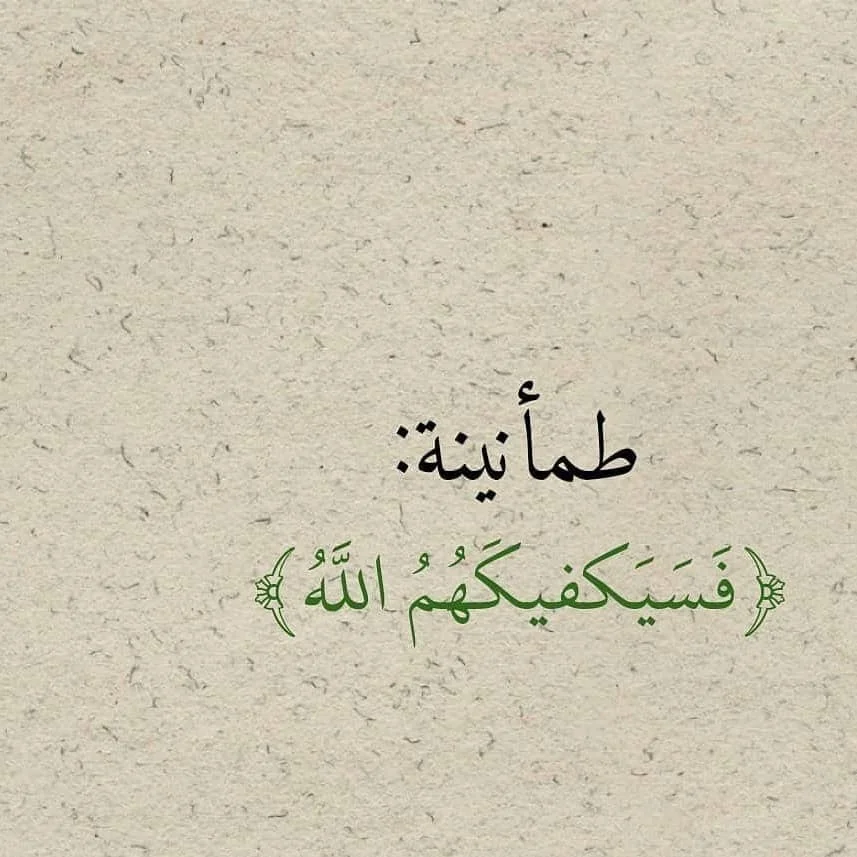 طمأنينة:
﴿فَسَيَكفيكَهُمُ اللَّهُ﴾